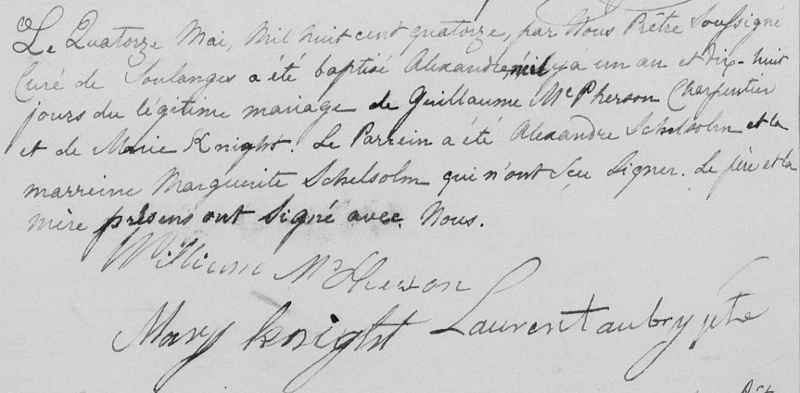 Le Quatorze Mai, Mil huit cent quatorze, par Nous Prêtre Soussigné
Curé de Soulanges a été baptisé Alexandre, né il y a un an et dix-huit
jours du légitime mariage de Guillaume McPherson Charpentier
et de Marie Knight. Le Parrein a été Alexandre Schelsolm et la
marreine Marguerite Schelsolm qui n'ont sçu signer. Le père et la
mère présens ont signé avec Nous.
William
Mary Knight Laurent aubry ptre